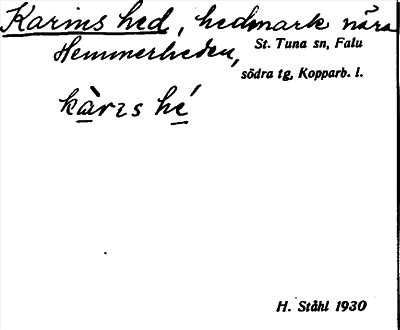 Karins hed, hedmark nära
Hemmerheden,
St. Tuna sn, Falu
södra tg, Kopparb. l.
kàrɩs hé
H. Ståhl 1930